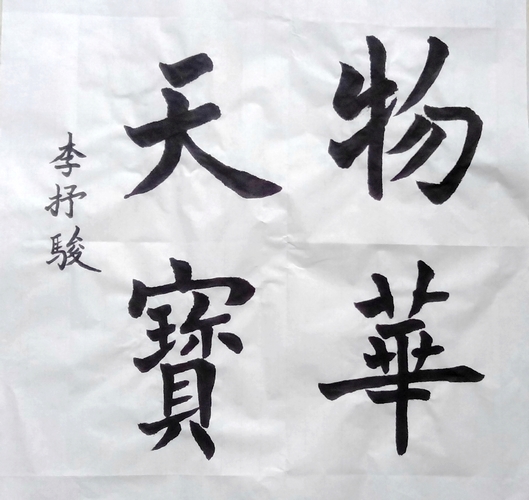 物華
天寶
李抒駿